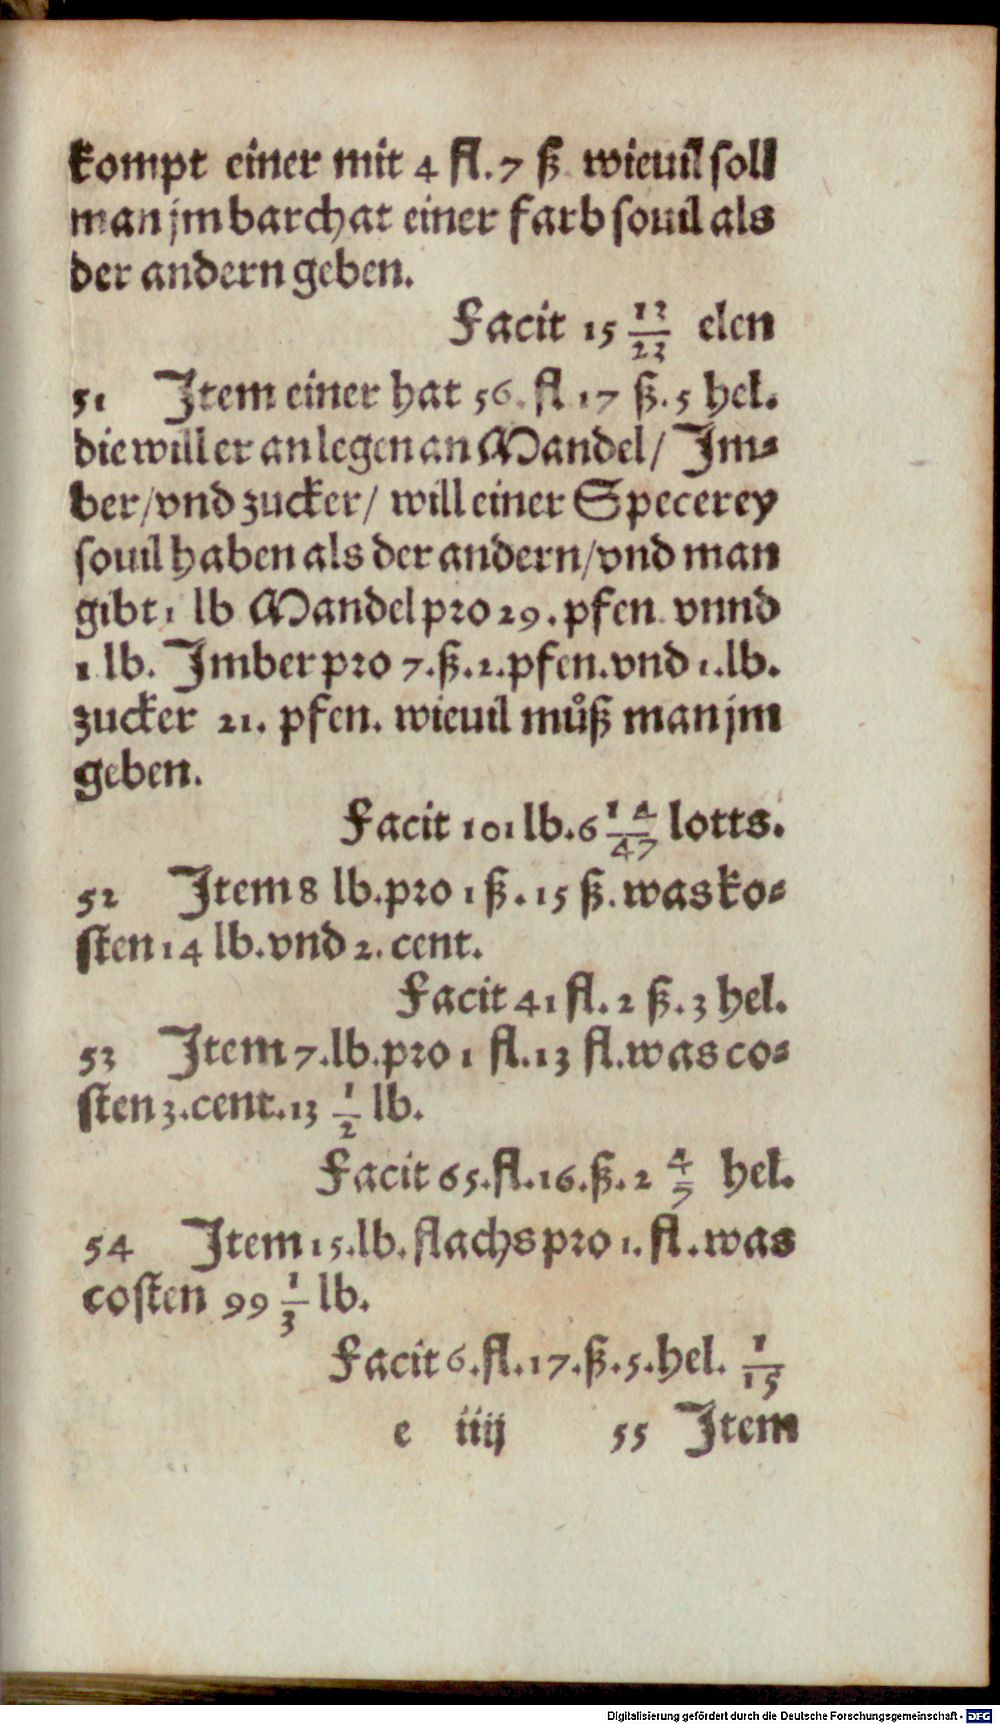 kompt einer mit 4 fl. 7 ß wieuil soll
man jm barchat einer farb souil als
der andern geben.
Facit 15 12/23 elen
51 Item einer hat 56. fl 17 ß. 5 hel.
die will er anlegen an Mandel/ Jm⸗
ber/vnd zucker/ will einer Specerey
souil haben als der andern/vnd man
gibt 1 lb Mandel pro 29. pfen. vnnd
1 lb. Jmber pro 7. ß. 2. pfen. vnd 1. lb.
zucker 21. pfen. wieuil můß man jm
geben.
Facit 101 lb. 6 14/47 lotts.
52 Item 8 lb. pro 1 ß. 15 ß. was ko⸗
sten 14 lb. vnd 2. cent.
Facit 41 fl. 2 ß. 3 hel.
53 Item 7. lb. pro 1 fl. 13 fl. was co⸗
sten 3. cent. 13 1/2 lb.
Facit 65. fl. 16. ß. 2 4/7 hel.
54 Item 15. lb. flachs pro 1. fl. was
costen 99 1/3 lb.
Facit 6. fl. 17. ß. 5. hel. 1/15
e iiij 55 Item
Digitalisierung gefördert durch die Deutsche Forschungsgemeinschaft - DFG